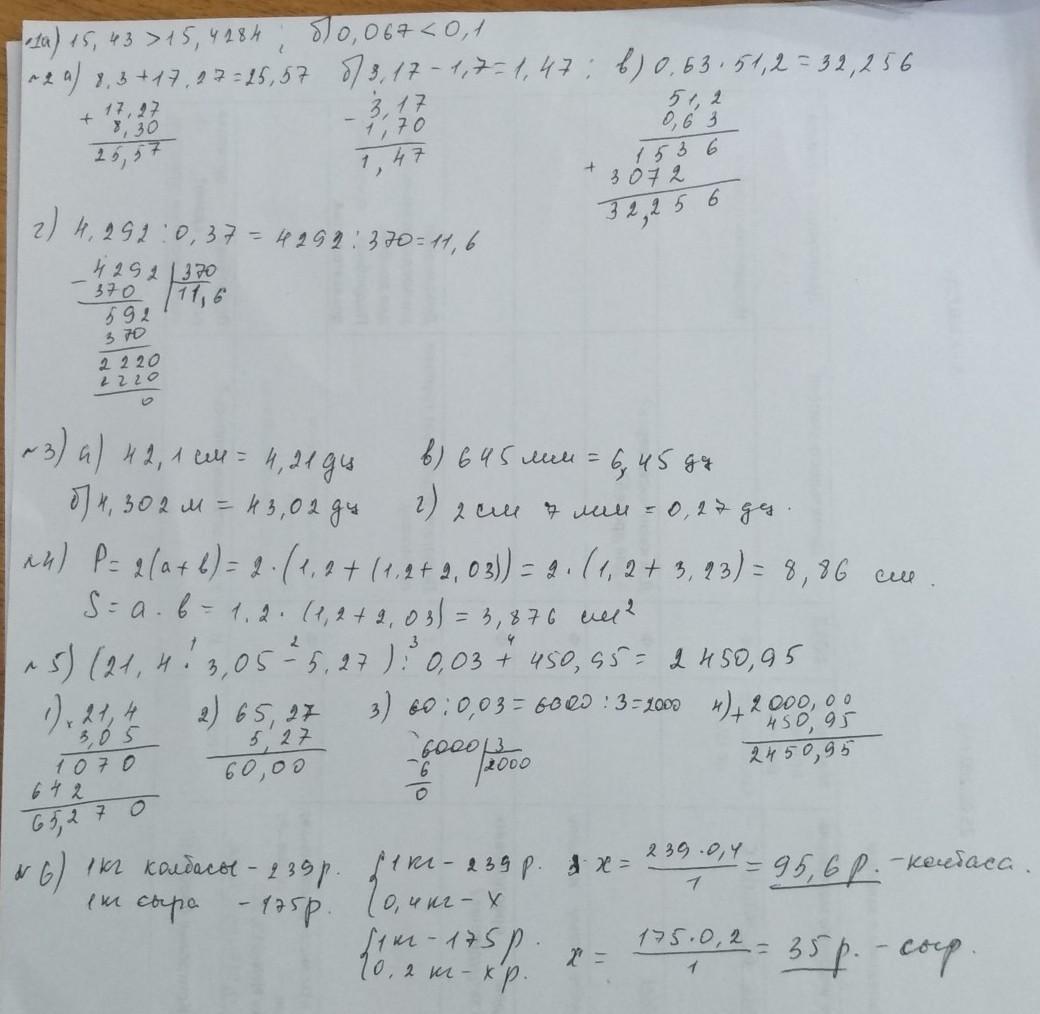 №1а) 15,43 > 15,4284 ; б) 0,067 < 0,1
№2 а) 8,3 + 17,27 = 25,57 б) 3,17 - 1,7 = 1,47 ; в) 0,63 · 51,2 = 32,256
+ 17,27
8,30
25,57
- 3,17
1,70
1,47
51,2
0,63
1536
+ 3072
32,256
г) 4,292 : 0,37 = 4292 : 370 = 11,6
- 4292 | 370
370 | 11,6
592
370
2220
2220
0
№3) а) 42,1 см = 4,21 дц в) 645 мм = 6,45 дц
б) 4,302 м = 43,02 дц г) 2 см 7 мм = 0,27 дц.
№4) P = 2(a+b) = 2 · (1,2 + (1,2 + 2,03)) = 2 · (1,2 + 3,23) = 8,86 см.
S = a · b = 1,2 · (1,2 + 2,03) = 3,876 см²
1 2 3 4
№5) (21,4 · 3,05 - 5,27) : 0,03 + 450,95 = 2450,95
1) × 21,4
3,05
1070
642
65,270
2) 65,27
5,27
60,00
3) 60 : 0,03 = 6000 : 3 = 2000
- 6000 | 3
6 | 2000
0
4) + 2000,00
450,95
2450,95
№6) 1кг колбасы - 239р. {1кг - 239р. x = 239·0,4/1 = 95,6 р. - колбаса.
1кг сыра - 175р. 0,4кг - x
{1кг - 175 р. x = 175·0,2/1 = 35 р. - сыр.
0,2 кг - x р.